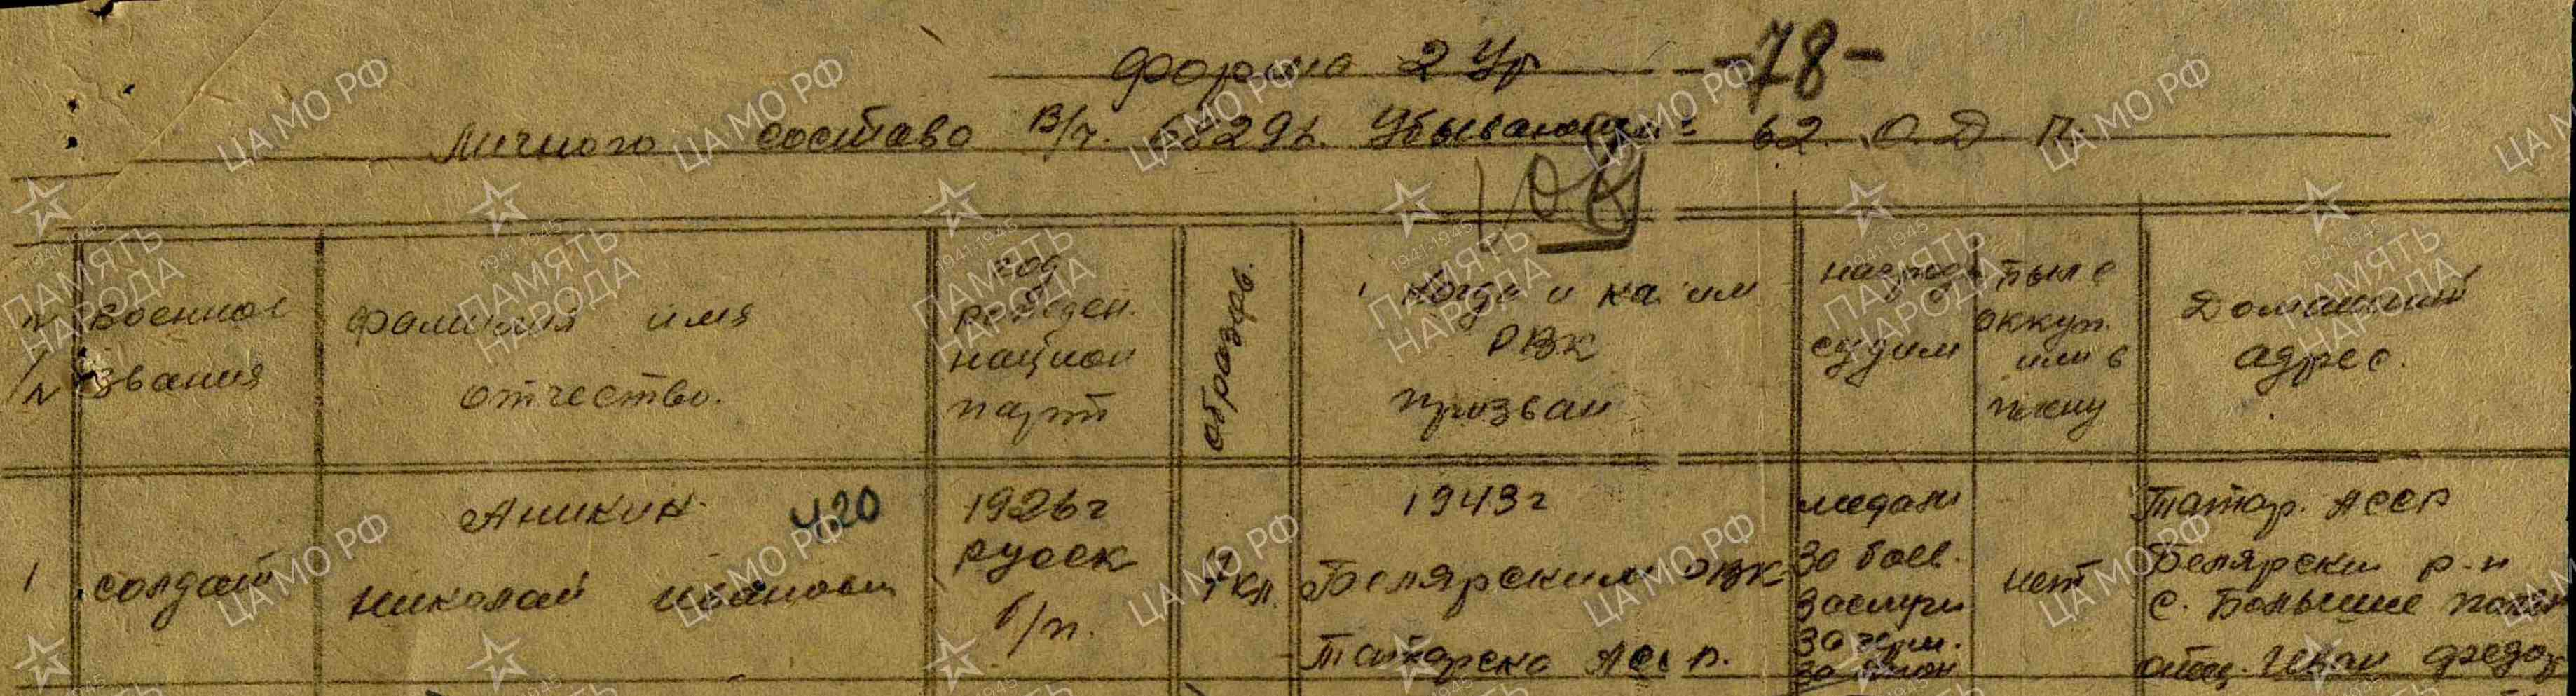 форма 2 Ур -78-
Личного состава в/ч. 68296. Убывающих 62. О.Д П.
108
N
/N
военное
звания
фамилия имя
отчество.
год
рожден.
национ
парт
образов.
когда и каким
РВК
призван
награды
судим
был в
оккуп.
или в
плену
Домашний
адрес.
1
солдат
Аникин 420
Николай Иванович
1926г
русск
б/п.
7 кл.
1943г
Белярским РВК
Татарско АССР.
медали
За боев.
Заслуги
За герм.
За япон
нет
Татар. АССР
Белярски р-н
с. Большие
отец. Иван Федор
ЦАМО РФ
1941-1945
ПАМЯТЬ
НАРОДА